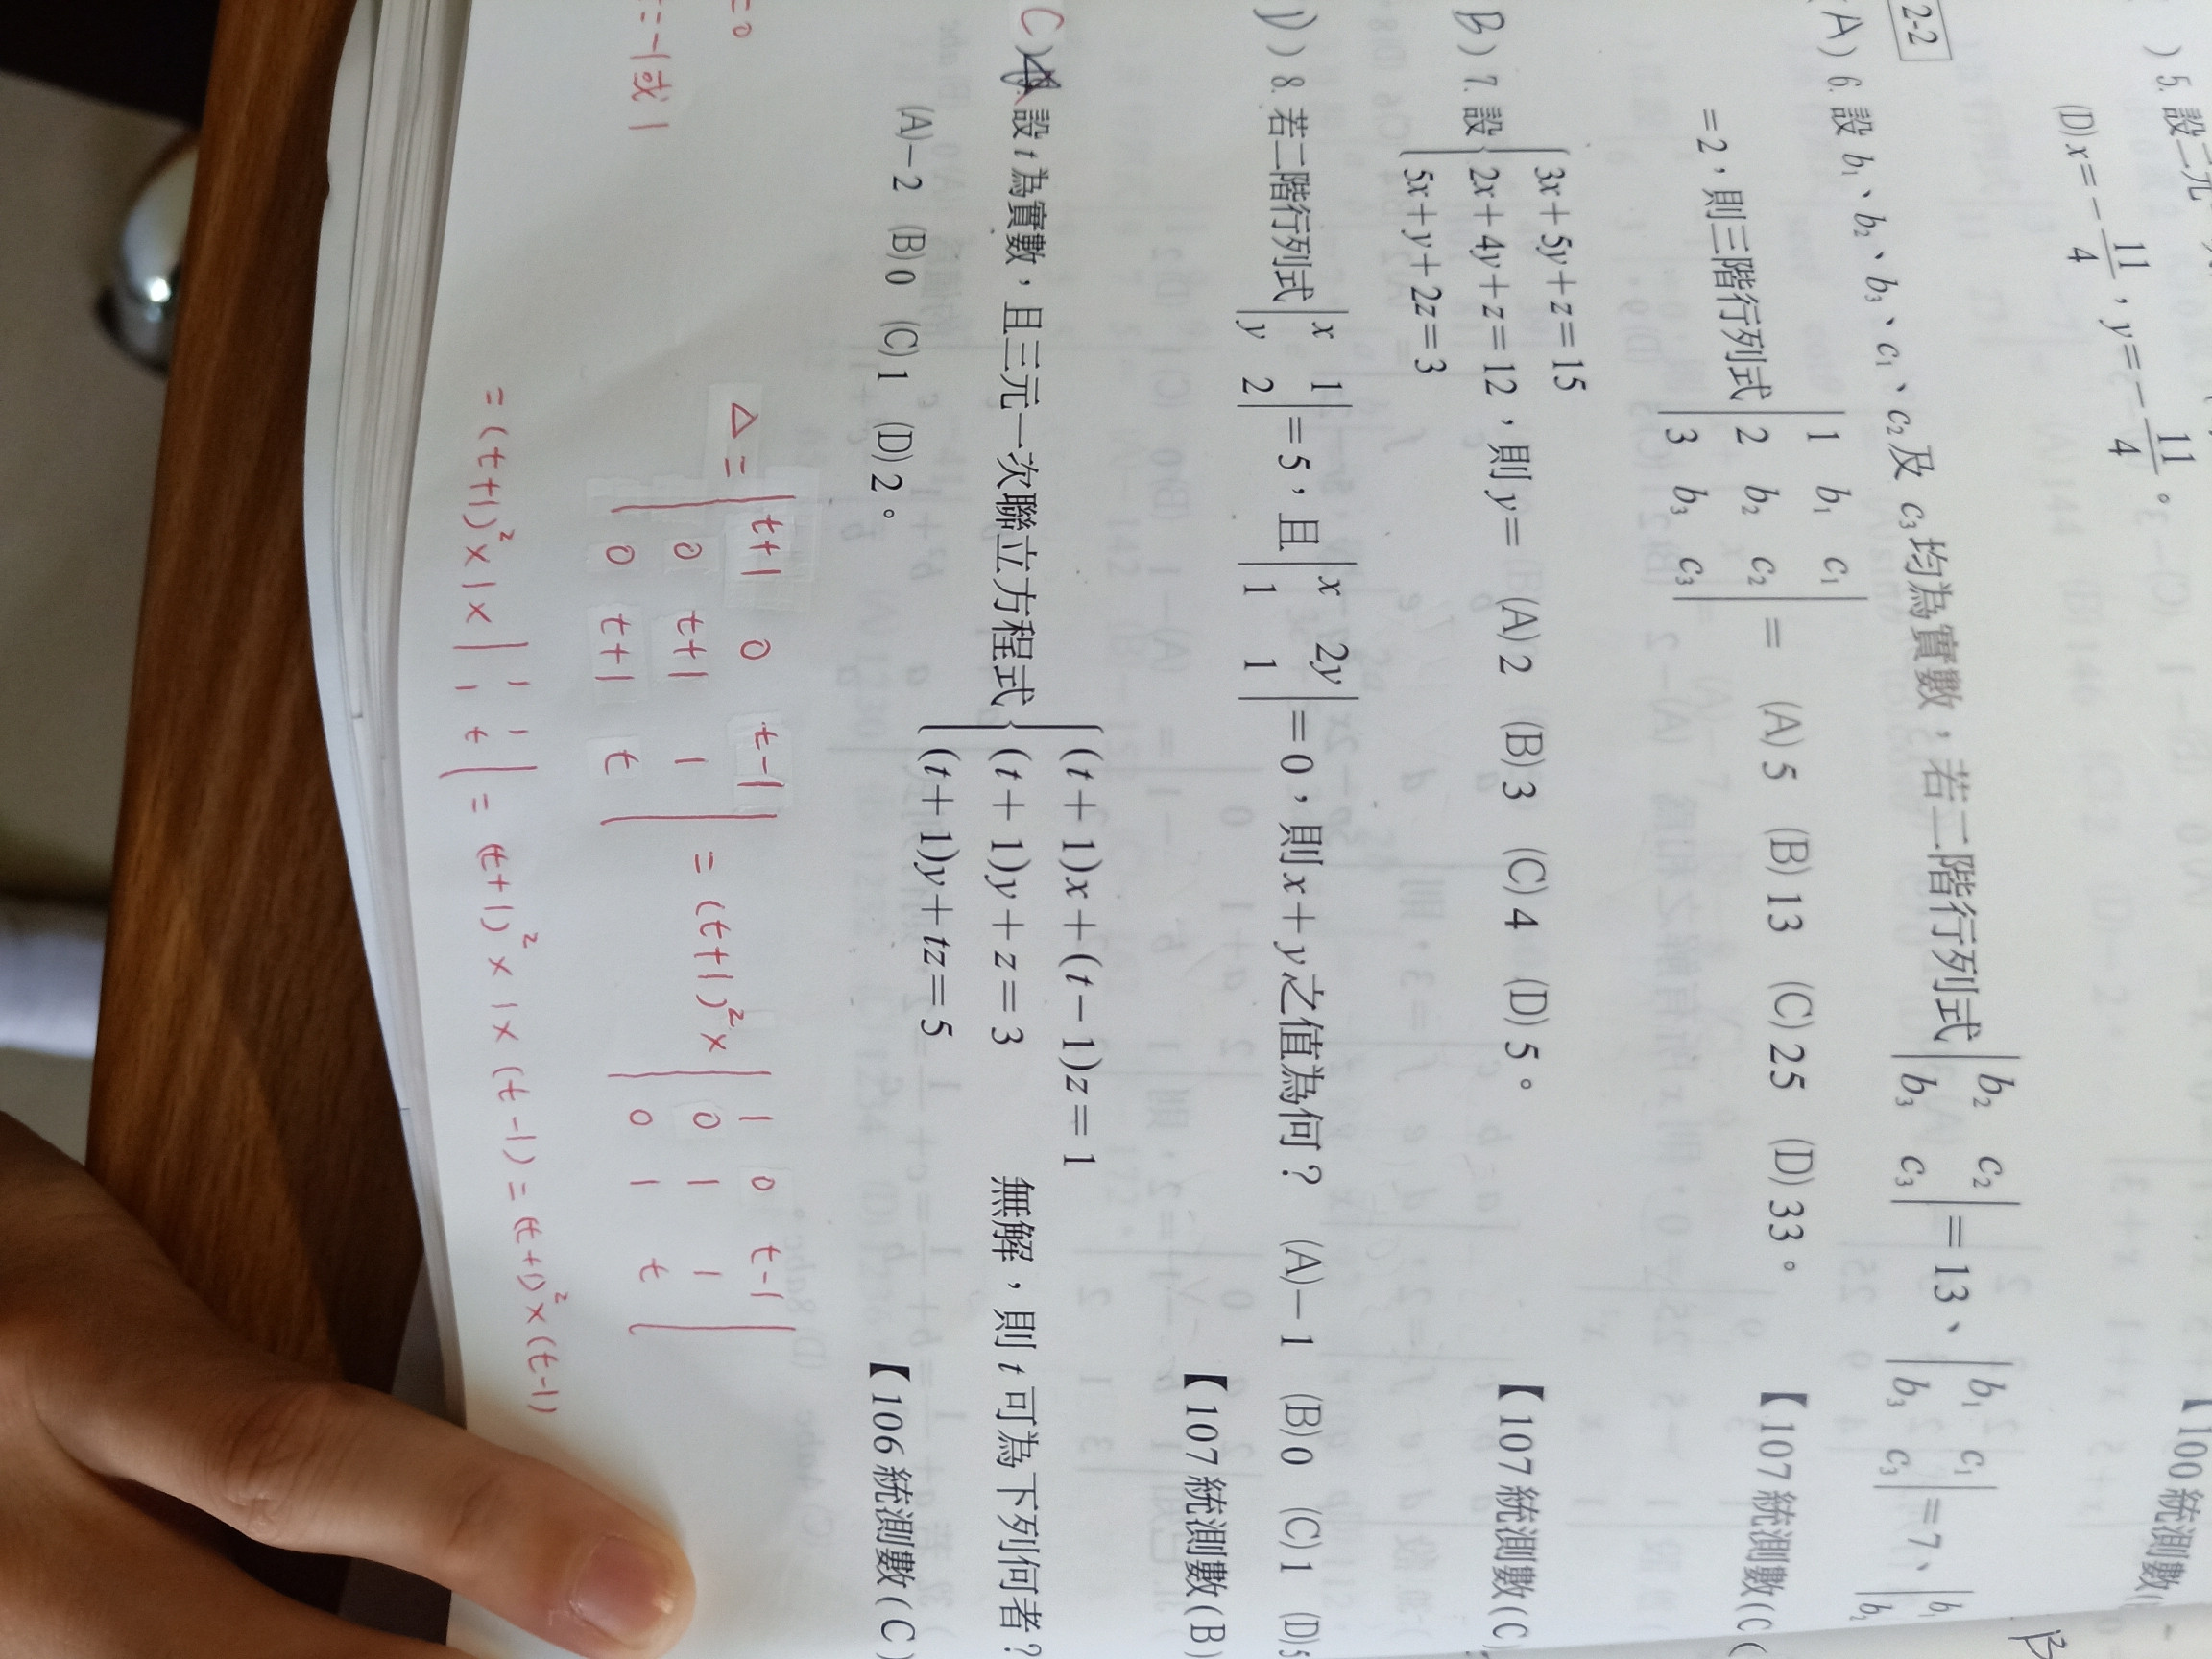 )5. 設二元
【100統測數(
(D) x=-11/4，y=-11/4。
2-2
(A) 6. 設 b₁、b₂、b₃、c₁、c₂及 c₃均為實數，若二階行列式 |b₂ c₂; b₃ c₃|=13、|b₁ c₁; b₃ c₃|=7、|b₁
=2，則三階行列式 |1 b₁ c₁; 2 b₂ c₂; 3 b₃ c₃|= (A) 5 (B) 13 (C) 25 (D) 33。
【107統測數(C
B) 7. 設 {3x+5y+z=15
2x+4y+z=12，則 y= (A) 2 (B) 3 (C) 4 (D) 5。
5x+y+2z=3
【107統測數(C)
) 8. 若二階行列式 |x 1; y 2|=5，且 |x 2y; 1 1|=0，則 x+y 之值為何？ (A)-1 (B) 0 (C) 1 (D) 5
【107統測數(B)
C) 設 t 為實數，且三元一次聯立方程式 {(t+1)x+(t-1)z=1
(t+1)y+z=3 無解，則 t 可為下列何者？
(t+1)y+tz=5
(A)-2 (B) 0 (C) 1 (D) 2。
【106統測數(C)
=0
△=|t+1 0 t-1; 0 t+1 1; 0 t+1 t|=(t+1)²×|1 0 t-1; 0 1 1; 0 1 t|
=-1或1
=(t+1)²×1×|1 1; 1 t|=(t+1)²×1×(t-1)=(t+1)²×(t-1)